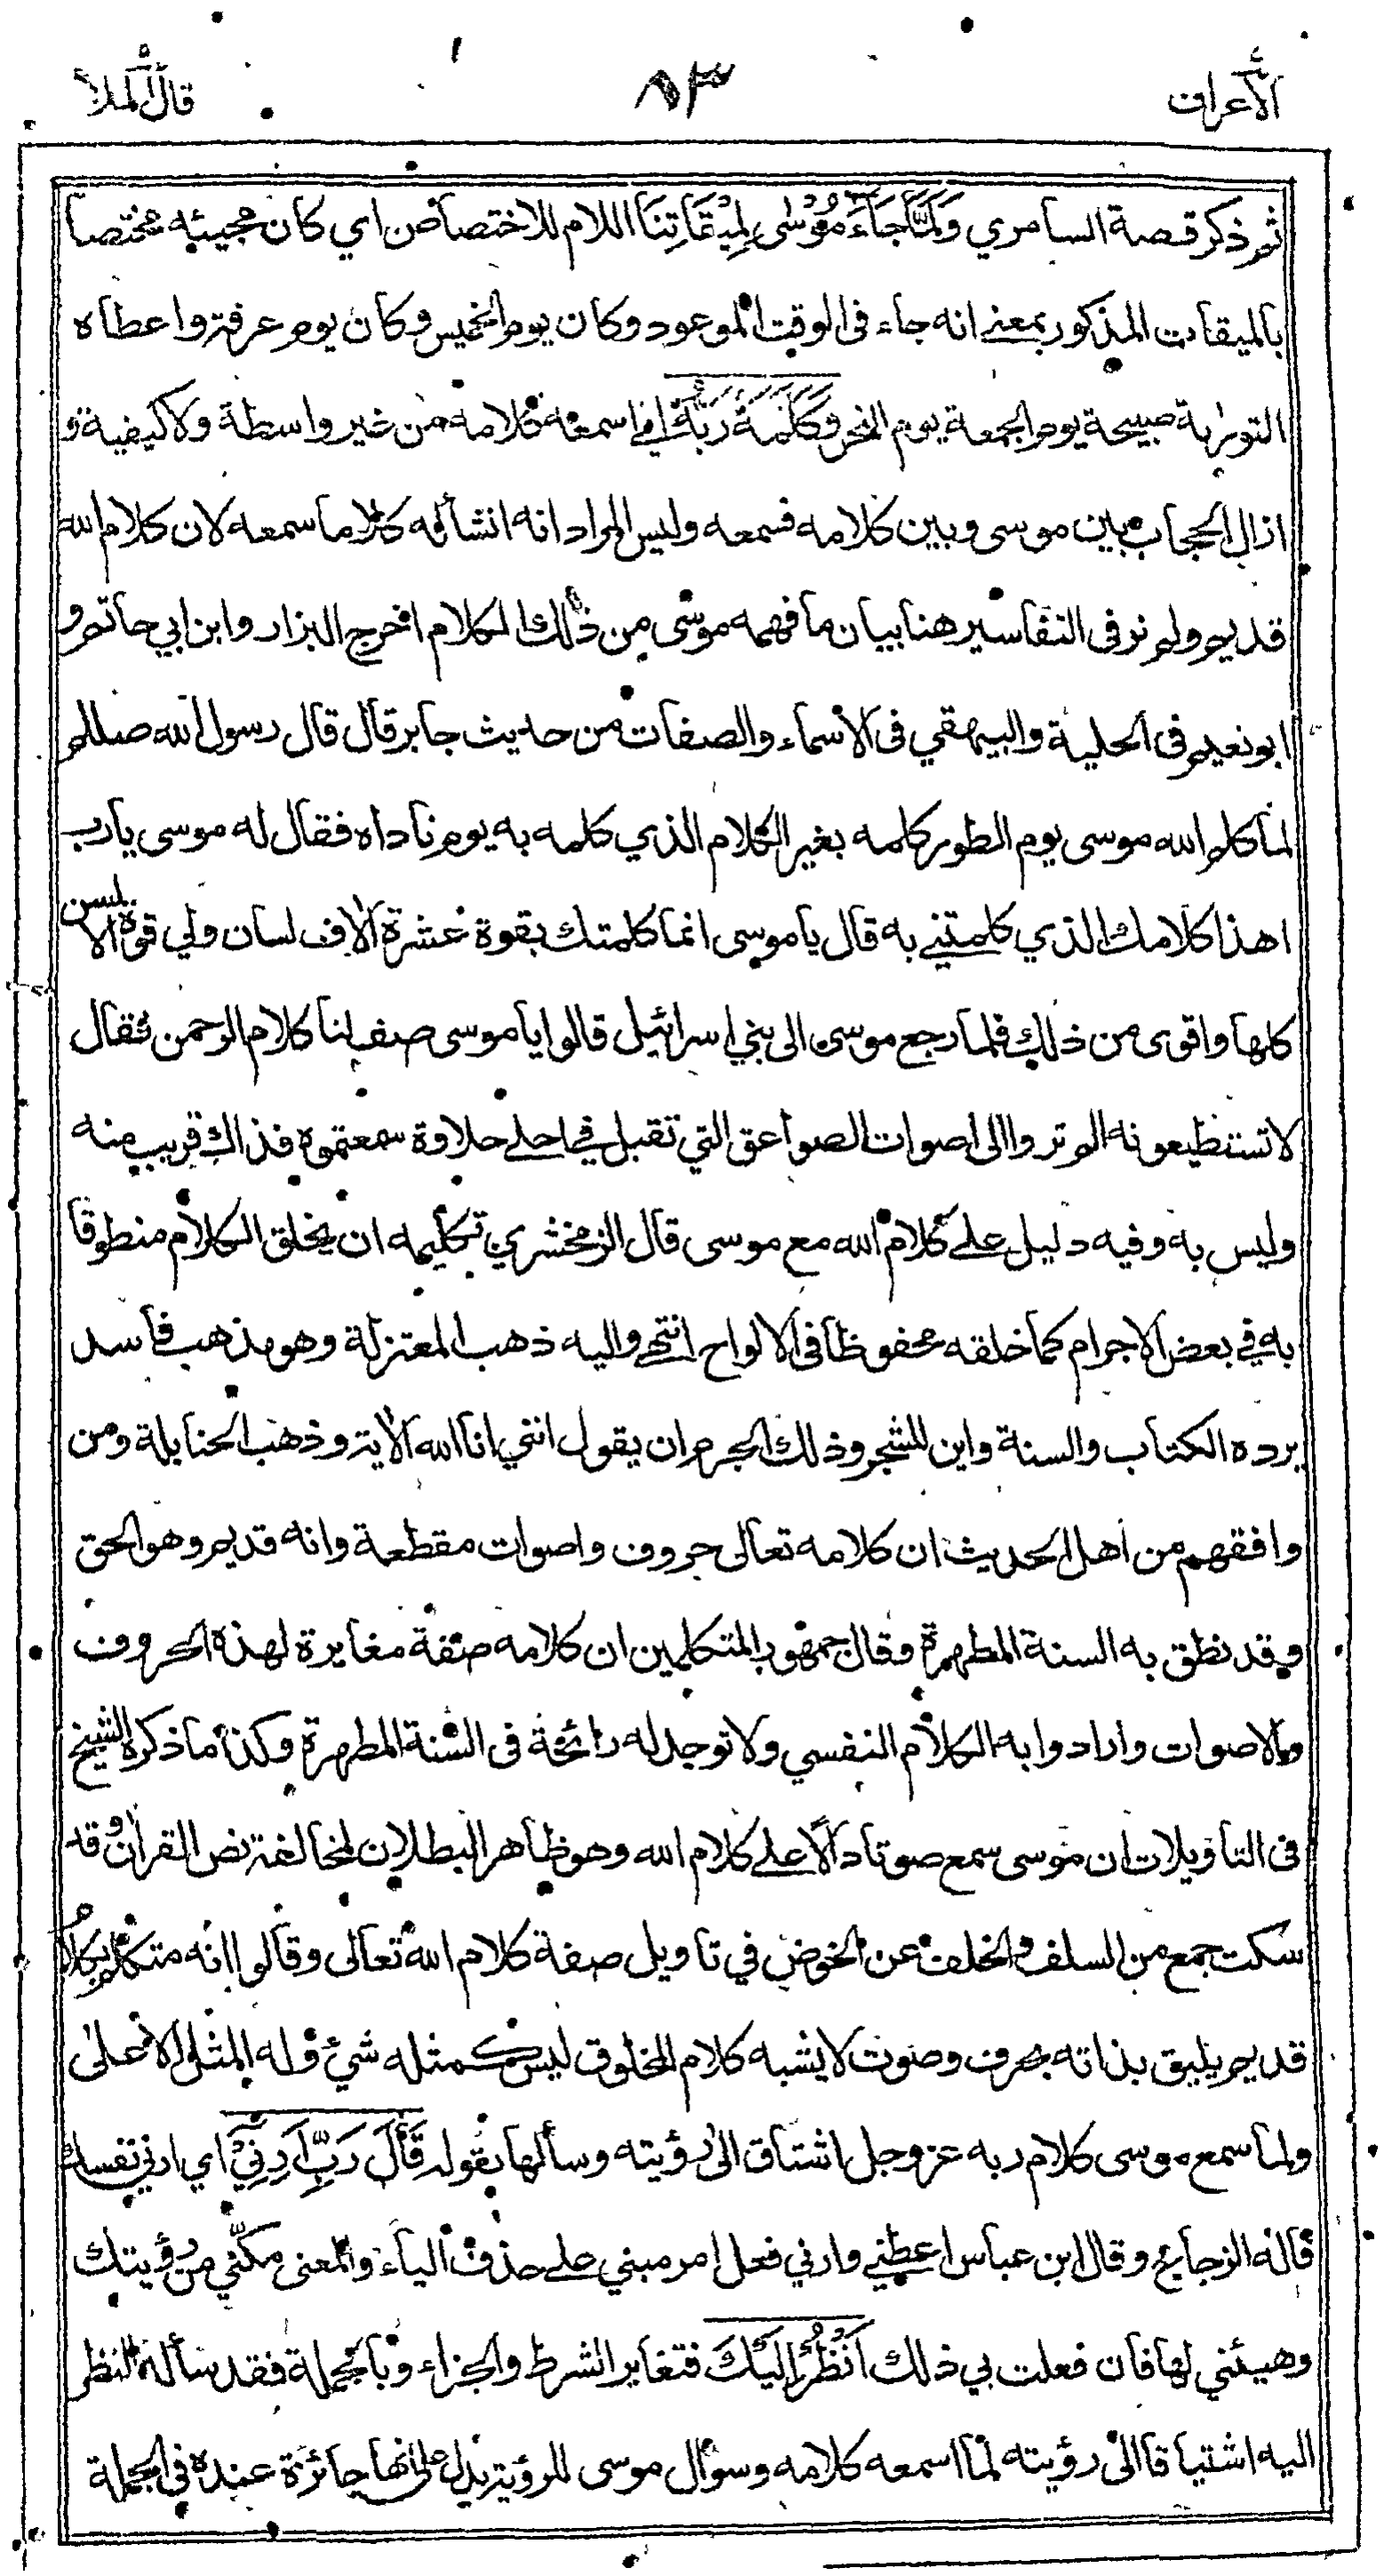 الأعراف ٨٣ قال الملأ
ثم ذكر قصة السامري وَلَمَّا جَاءَ مُوسٰى لِمِيْقَاتِنَا اللام للاختصاص اي كان مجيئه مختصا
بالميقات المذكور بمعنى انه جاء فى الوقت الموعود وكان يوم الخميس وكان يوم عرفة واعطاه
التورٰية صبيحة يوم الجمعة يوم النحر وَكَلَّمَهُ رَبُّهُ اي اسمعه كلامه من غير واسطة ولا كيفية و
ازال الحجاب بين موسى وبين كلامه فسمعه وليس المراد انه انشأ له كلاما سمعه لان كلام الله
قديم ولم نر فى التفاسير هنا بيان ما فهمه موسى من ذلك الكلام اخرج البزار وابن ابي حاتم و
ابو نعيم فى الحلية والبيهقي فى الاسماء والصفات من حديث جابر قال قال رسول الله صللم
لما كلم الله موسى يوم الطور كلمه بغير الكلام الذي كلمه به يوم ناداه فقال له موسى يا رب
اهذا كلامك الذي كلمتني به قال يا موسى انما كلمتك بقوة عشرة اٰلاف لسان ولي قوة الالسن
كلها واقوى من ذلك فلما رجع موسى الى بني اسرائيل قالوا يا موسى صف لنا كلام الرحمن فقال
لا تستطيعونه الم تروا الى اصوات الصواعق التي تقبل في احلى حلاوة سمعتموه فذاك قريب منه
وليس به وفيه دليل على كلام الله مع موسى قال الزمخشري تكليمه ان يخلق الكلام منطوقا
به في بعض الاجرام كما خلقه محفوظا فى الالواح انتهى واليه ذهب المعتزلة وهو مذهب فاسد
يرده الكتاب والسنة واين للشجر وذلك الجرم ان يقول انني انا الله الاٰية وذهب الحنابلة ومن
وافقهم من اهل الحديث ان كلامه تعالى حروف واصوات مقطعة وانه قديم وهو الحق
وقد نطق به السنة المطهرة وقال جمهور المتكلمين ان كلامه صفة مغايرة لهذه الحروف
والاصوات وارادوا به الكلام النفسي ولا توجد له رائحة فى السنة المطهرة وكذا ما ذكره الشيخ
فى التاويلات ان موسى سمع صوتا دالّا على كلام الله وهو ظاهر البطلان لمخالفة نص القراٰن وقد
سكت جمع من السلف والخلف عن الخوض في تاويل صفة كلام الله تعالى وقالوا انه متكلم بكلام
قديم يليق بذاته بحرف وصوت لا يشبه كلام المخلوق ليس كمثله شيء وله المثل الاعلى
ولما سمع موسى كلام ربه عز وجل اشتاق الى رؤيته وسألها بقوله قَالَ رَبِّ اَرِنِيْ اي ارني نفسك
قاله الزجاج وقال ابن عباس اعطني وارني فعل امر مبني على حذف الياء والمعنى مكّني من رؤيتك
وهيئني لها فان فعلت بي ذلك اَنْظُرْ اِلَيْكَ فتغاير الشرط والجزاء وبالجملة فقد سأله النظر
اليه اشتياقا الى رؤيته لما اسمعه كلامه وسؤال موسى للرؤية يدل على انها جائزة عنده فى الجملة